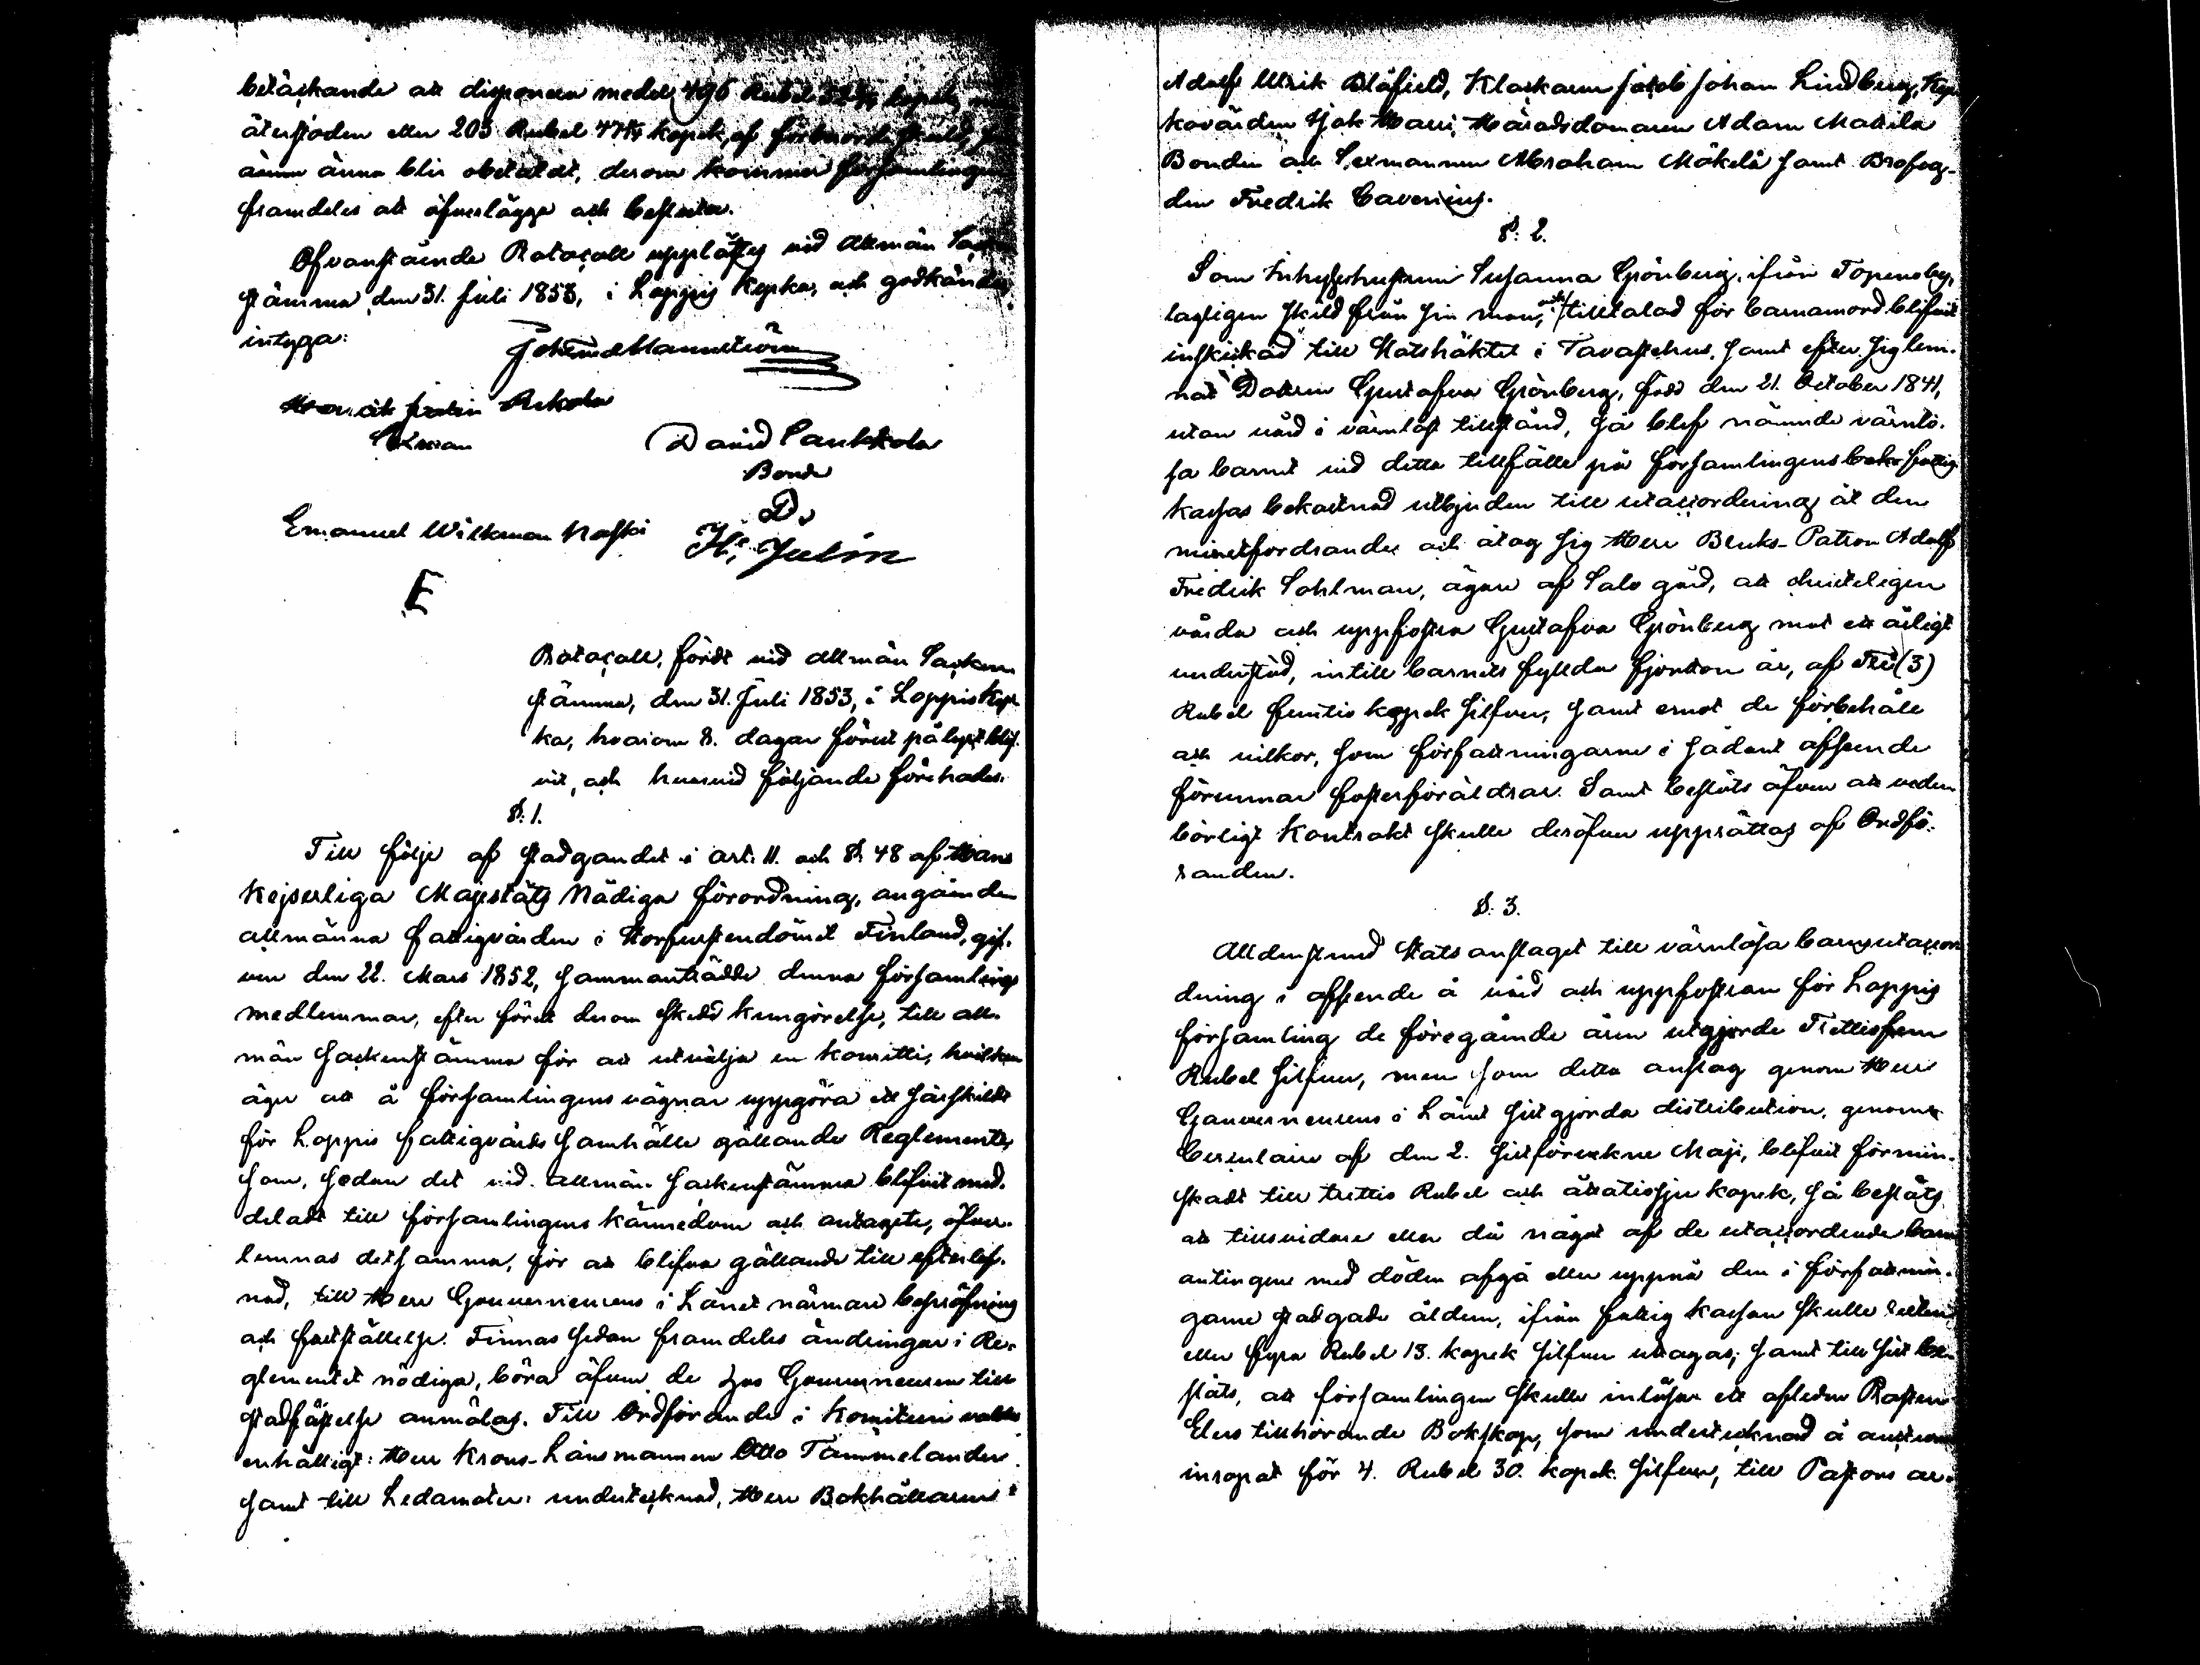 betäckande att disponera medel, 496 Rubel kopek,
återstoden eller 203 Rubel 47 kopek, af förbemörde
ännu blir obetaldt, derom kommer församlingen
framdeles att öfverlägga och besluta.
Ofvanstående Protocoll upplästes vid allmän Socken
stämma den 31. Juli 1853, i Loppis Kyrka, och godkändes
intyga:
Joh Fred Mannström
Henrik Rekola
David Saukkola
Bonde
Emanuel Wilkman
H. Julin
E
Protocoll, fördt vid allmän Socken
stämma, den 31. Juli 1853, i Loppis Kyr
ka, hvarom 8. dagar förut pålyst blif.
vit, och hvarvid följande förehades.
§. 1.
Till följe af stadgandet i art. 11. och §. 48 af Hans
Kejserliga Majestäts Nådiga förordning, angående
allmänna fattigvården i Storfurstendömet Finland, gif.
ven den 22. Mars 1852, sammanträdde denna församlings
medlemmar, efter förut derom skedd kungörelse, till all-
män sockenstämma för att utvälja en komitti, hvilken
äger att å församlingens vägnar uppgöra ett särskildt
för Loppis fattigvårds samhälle gällande Reglemente,
som, sedan det vid allmän sockenstämma blifvit med.
deladt till församlingens kännedom och antagits, öfver.
lemnas detsamma, för att blifva gällande till efterlef.
nad, till Herr Gouverneurens i Länet närmare bepröfning
och fastställelse. Finnas sedan framdeles ändringar i Re.
glementet nödiga, böra äfven de hos Gouverneuren till
stadfästelse anmälas. Till Ordförande i Komiteen valdes
enhälligt: Herr Krono-Länsmannen Otto Tammelander
samt till Ledamöter: undertecknad, Herr Bokhållaren
Adolf Ulrik Blåfield, Klockaren Jacob Johan Lindberg, Kyr
kovärden Isak Harri, Häradsdomaren Adam Mattila
Bonden och Sexmannen Abraham Mäkelä samt Brofog-
den Fredrik Cavenius.
§. 2.
Som Inhyseshustrun Susanna Grönberg, ifrån Topenoby,
lagligen skild från sin man, och tilltalad för barnamord blifvit
inskickad till Statshäktet i Tavastehus, samt efter sig lem.
nat Dottren Gustafva Grönberg, född den 21. October 1841,
utan vård i värnlöst tillstånd, så blef nämnde värnlö.
sa barnet vid detta tillfälle på församlingens fattig
kassas bekostnad utbjuden till utaccordering åt den
minstfordrande och åtog sig Herr Bruks-Patron Adolf
Fredrik Sohlman, ägare af Salo gård, att christeligen
vårda och uppfostra Gustafva Grönberg mot ett årligt
understöd, intill barnets fyllda fjorton år, af Tre (3)
Rubel femtio kopek silfver, samt emot de förbehåll
och vilkor, som författningarne i sådant afseende
förunnar fosterföräldrar. Samt beslöts äfven att veder
börligt Kontrakt skulle deröfver upprättas af Ordfö.
randen.
§. 3.
Alldenstund Statsanslaget till värnlösa barns utaccor
dering i afseende å vård och uppfostran för Loppis
församling de föregående åren utgjorde Trettiofem
Rubel silfver, men som detta anslag genom Herr
Gouverneurens i Länet sist gjorda distribution, genom
Cirkulair af den 2. sistförvekne Maji, blifvit förmin.
skadt till trettio Rubel och åttatiosju kopek, så beslöts
att tillsvidare eller då något af de utaccorderade barn
antingen med döden afgå eller uppnå den i författnin.
garne stadgade åldern, ifrån fattig kassan skulle
eller fyra Rubel 13. kopek silfver uttagas; samt till sist be-
slöts, att församlingen skulle inlösa ett afledne Pastor
Elers tillhörande Bokskåp, som undertecknad å auction
inropat för 4. Rubel 30. kopek silfver, till Pastors ar.